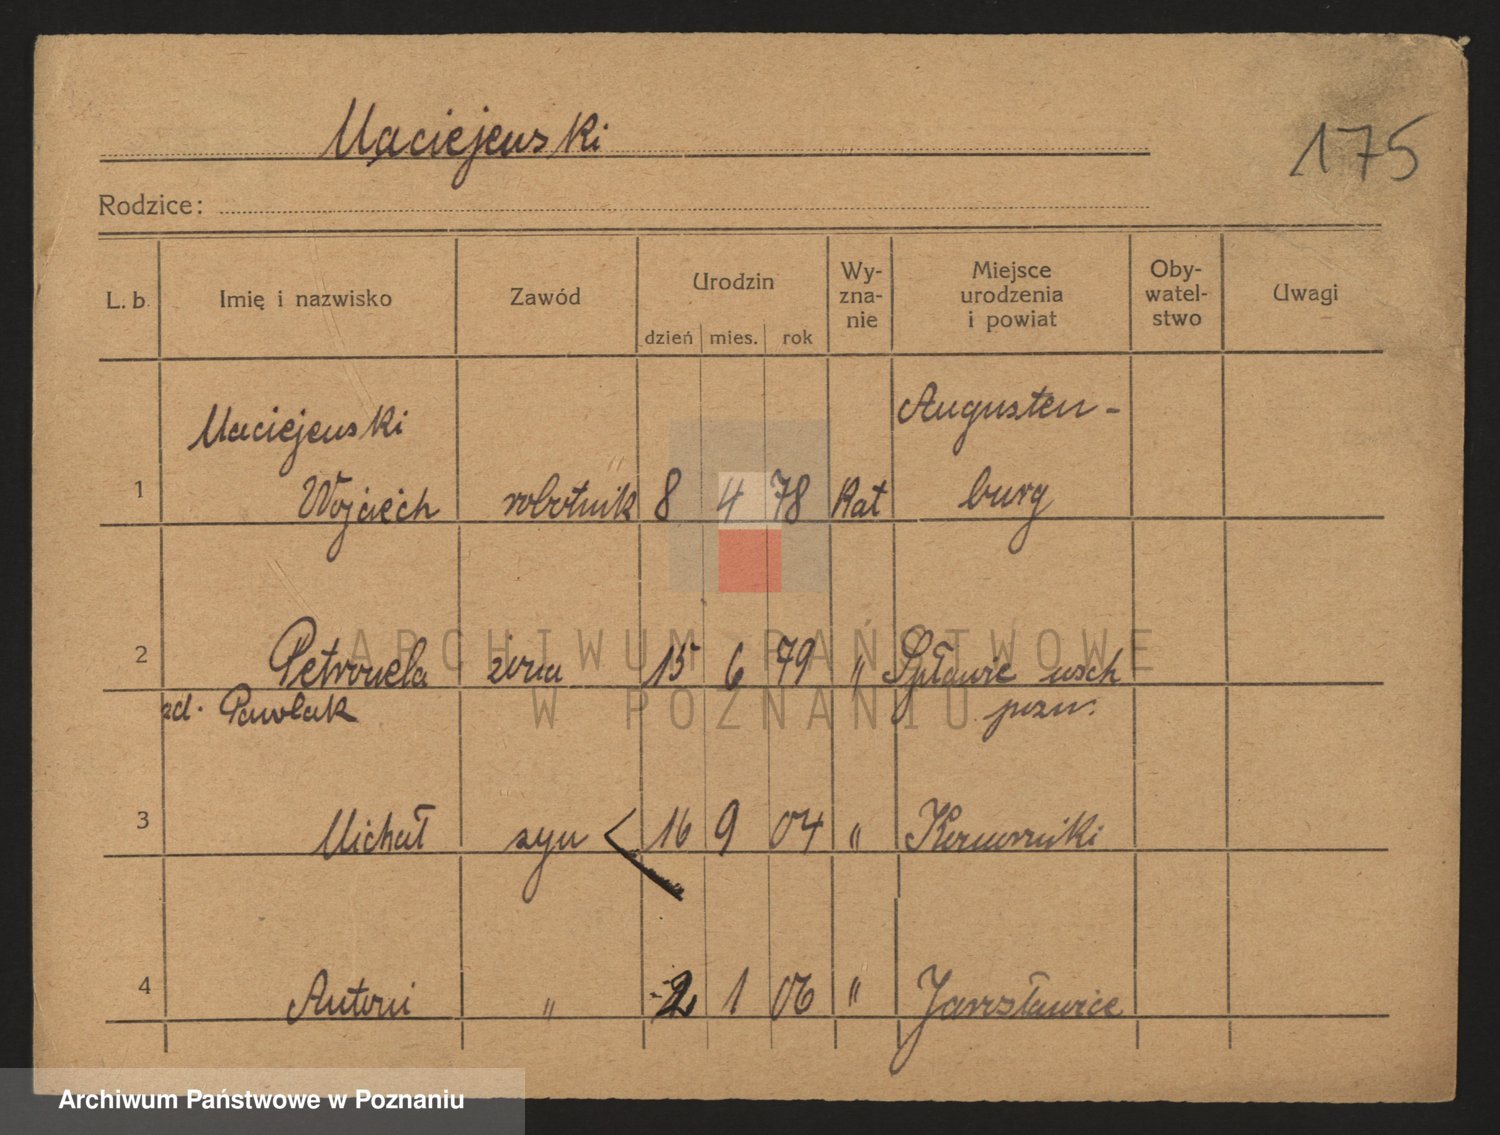 Maciejewski
175
Rodzice:
L. b. Imię i nazwisko Zawód Urodzin dzień mies. rok Wy-zna-nie Miejsce urodzenia i powiat Oby-watel-stwo Uwagi
Maciejewski Augusten-
1 Wojciech robotnik 8 4 78 Kat burg
2 Petronela żona 15 6 79 " Spławie wsch
zd. Pawlak pozn.
3 Michał syn 16 9 04 "
4 Antoni " 2 1 06 " Jarosławice
ARCHIWUM PAŃSTWOWE
W POZNANIU
Archiwum Państwowe w Poznaniu